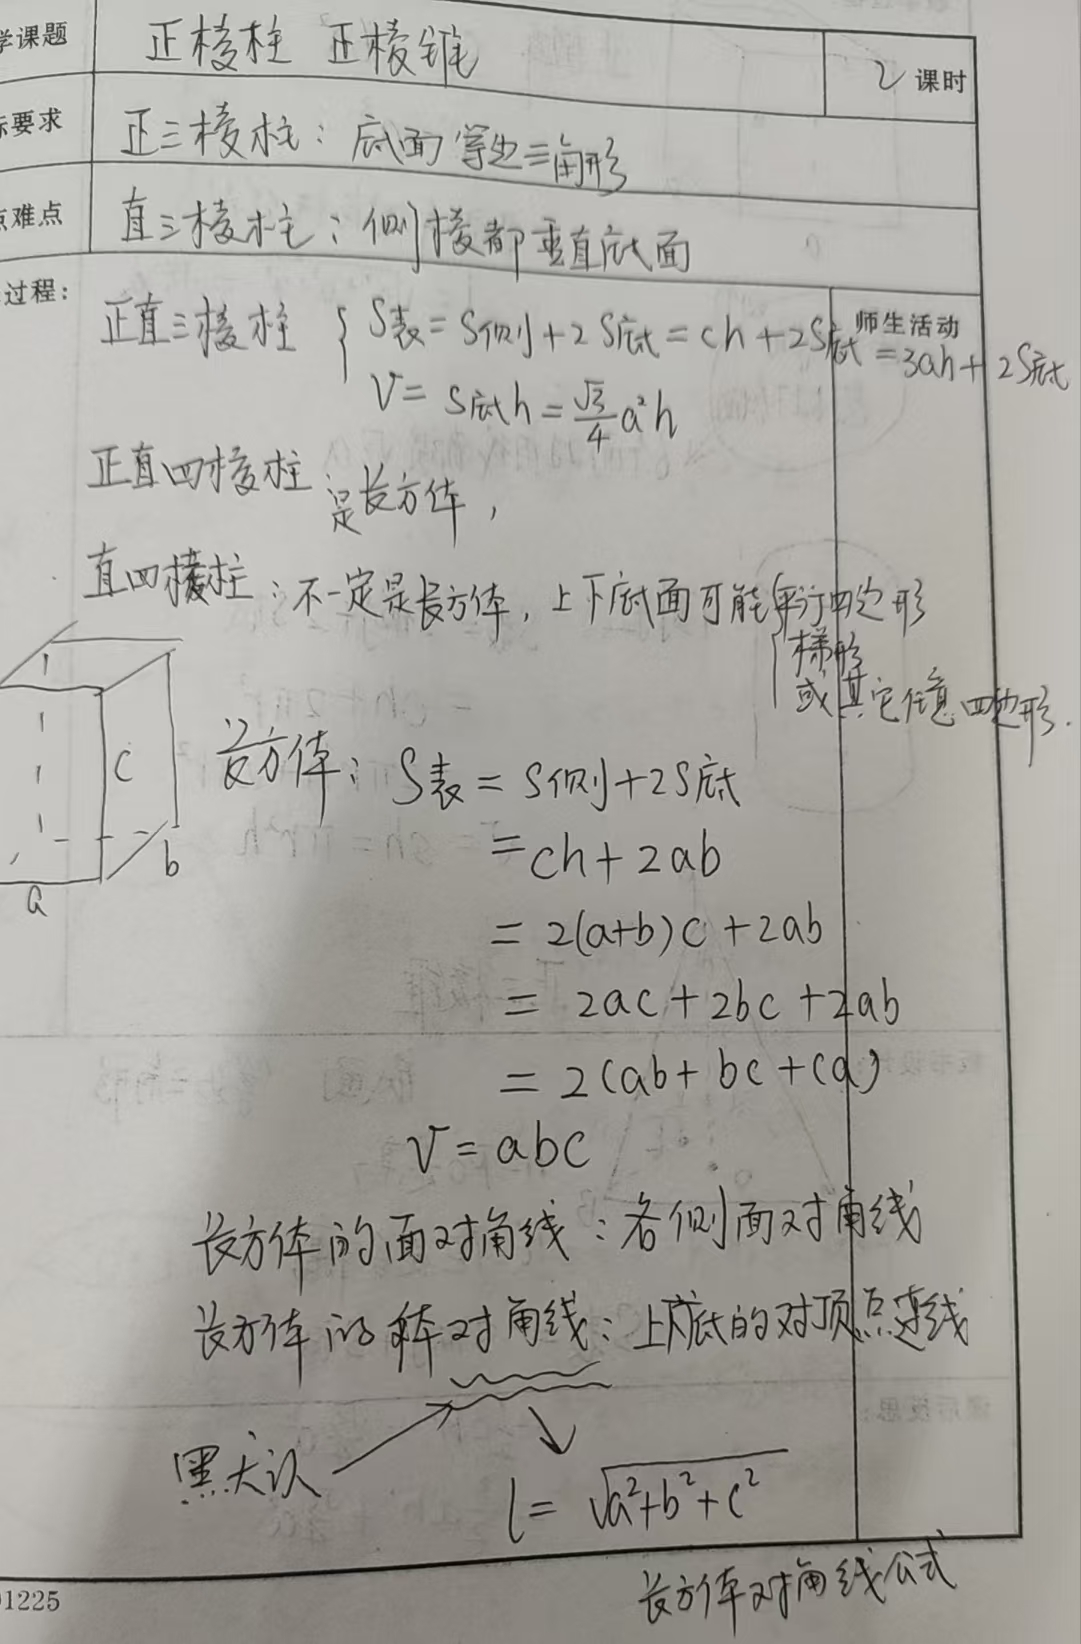 学课题 正棱柱 正棱锥 2 课时
标要求 正三棱柱：底面等边三角形
点难点 直三棱柱：侧棱都垂直底面
过程：
师生活动
正直三棱柱 { S表=S侧+2S底=ch+2S底=3ah+2S底
V=S底h=√3/4 a²h
正直四棱柱是长方体，
直四棱柱：不一定是长方体，上下底面可能{平行四边形
梯形
或其它任意四边形.
c
b
a
长方体：S表=S侧+2S底
=ch+2ab
=2(a+b)c+2ab
=2ac+2bc+2ab
=2(ab+bc+ca)
V=abc
长方体的面对角线：各侧面对角线
长方体的体对角线：上下底的对顶点连线
默认
l=√a²+b²+c²
长方体对角线公式
01225